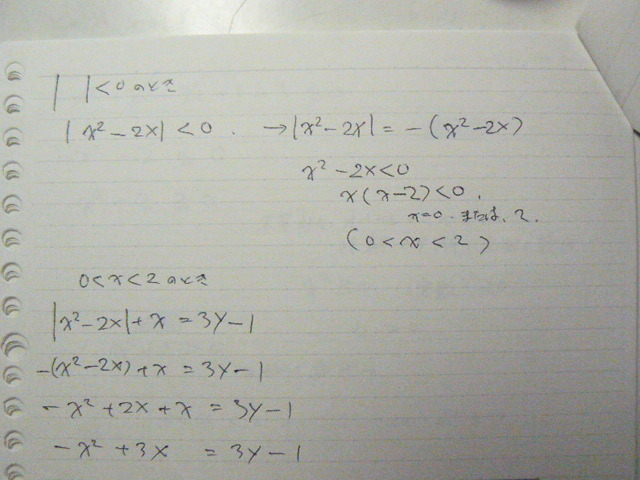 | |<0 のとき
|x²-2x|<0. →|x²-2x|=-(x²-2x)
x²-2x<0
x(x-2)<0.
x=0. または, 2.
(0<x<2)
0<x<2 のとき
|x²-2x|+x=3y-1
-(x²-2x)+x=3y-1
-x²+2x+x=3y-1
-x²+3x =3y-1